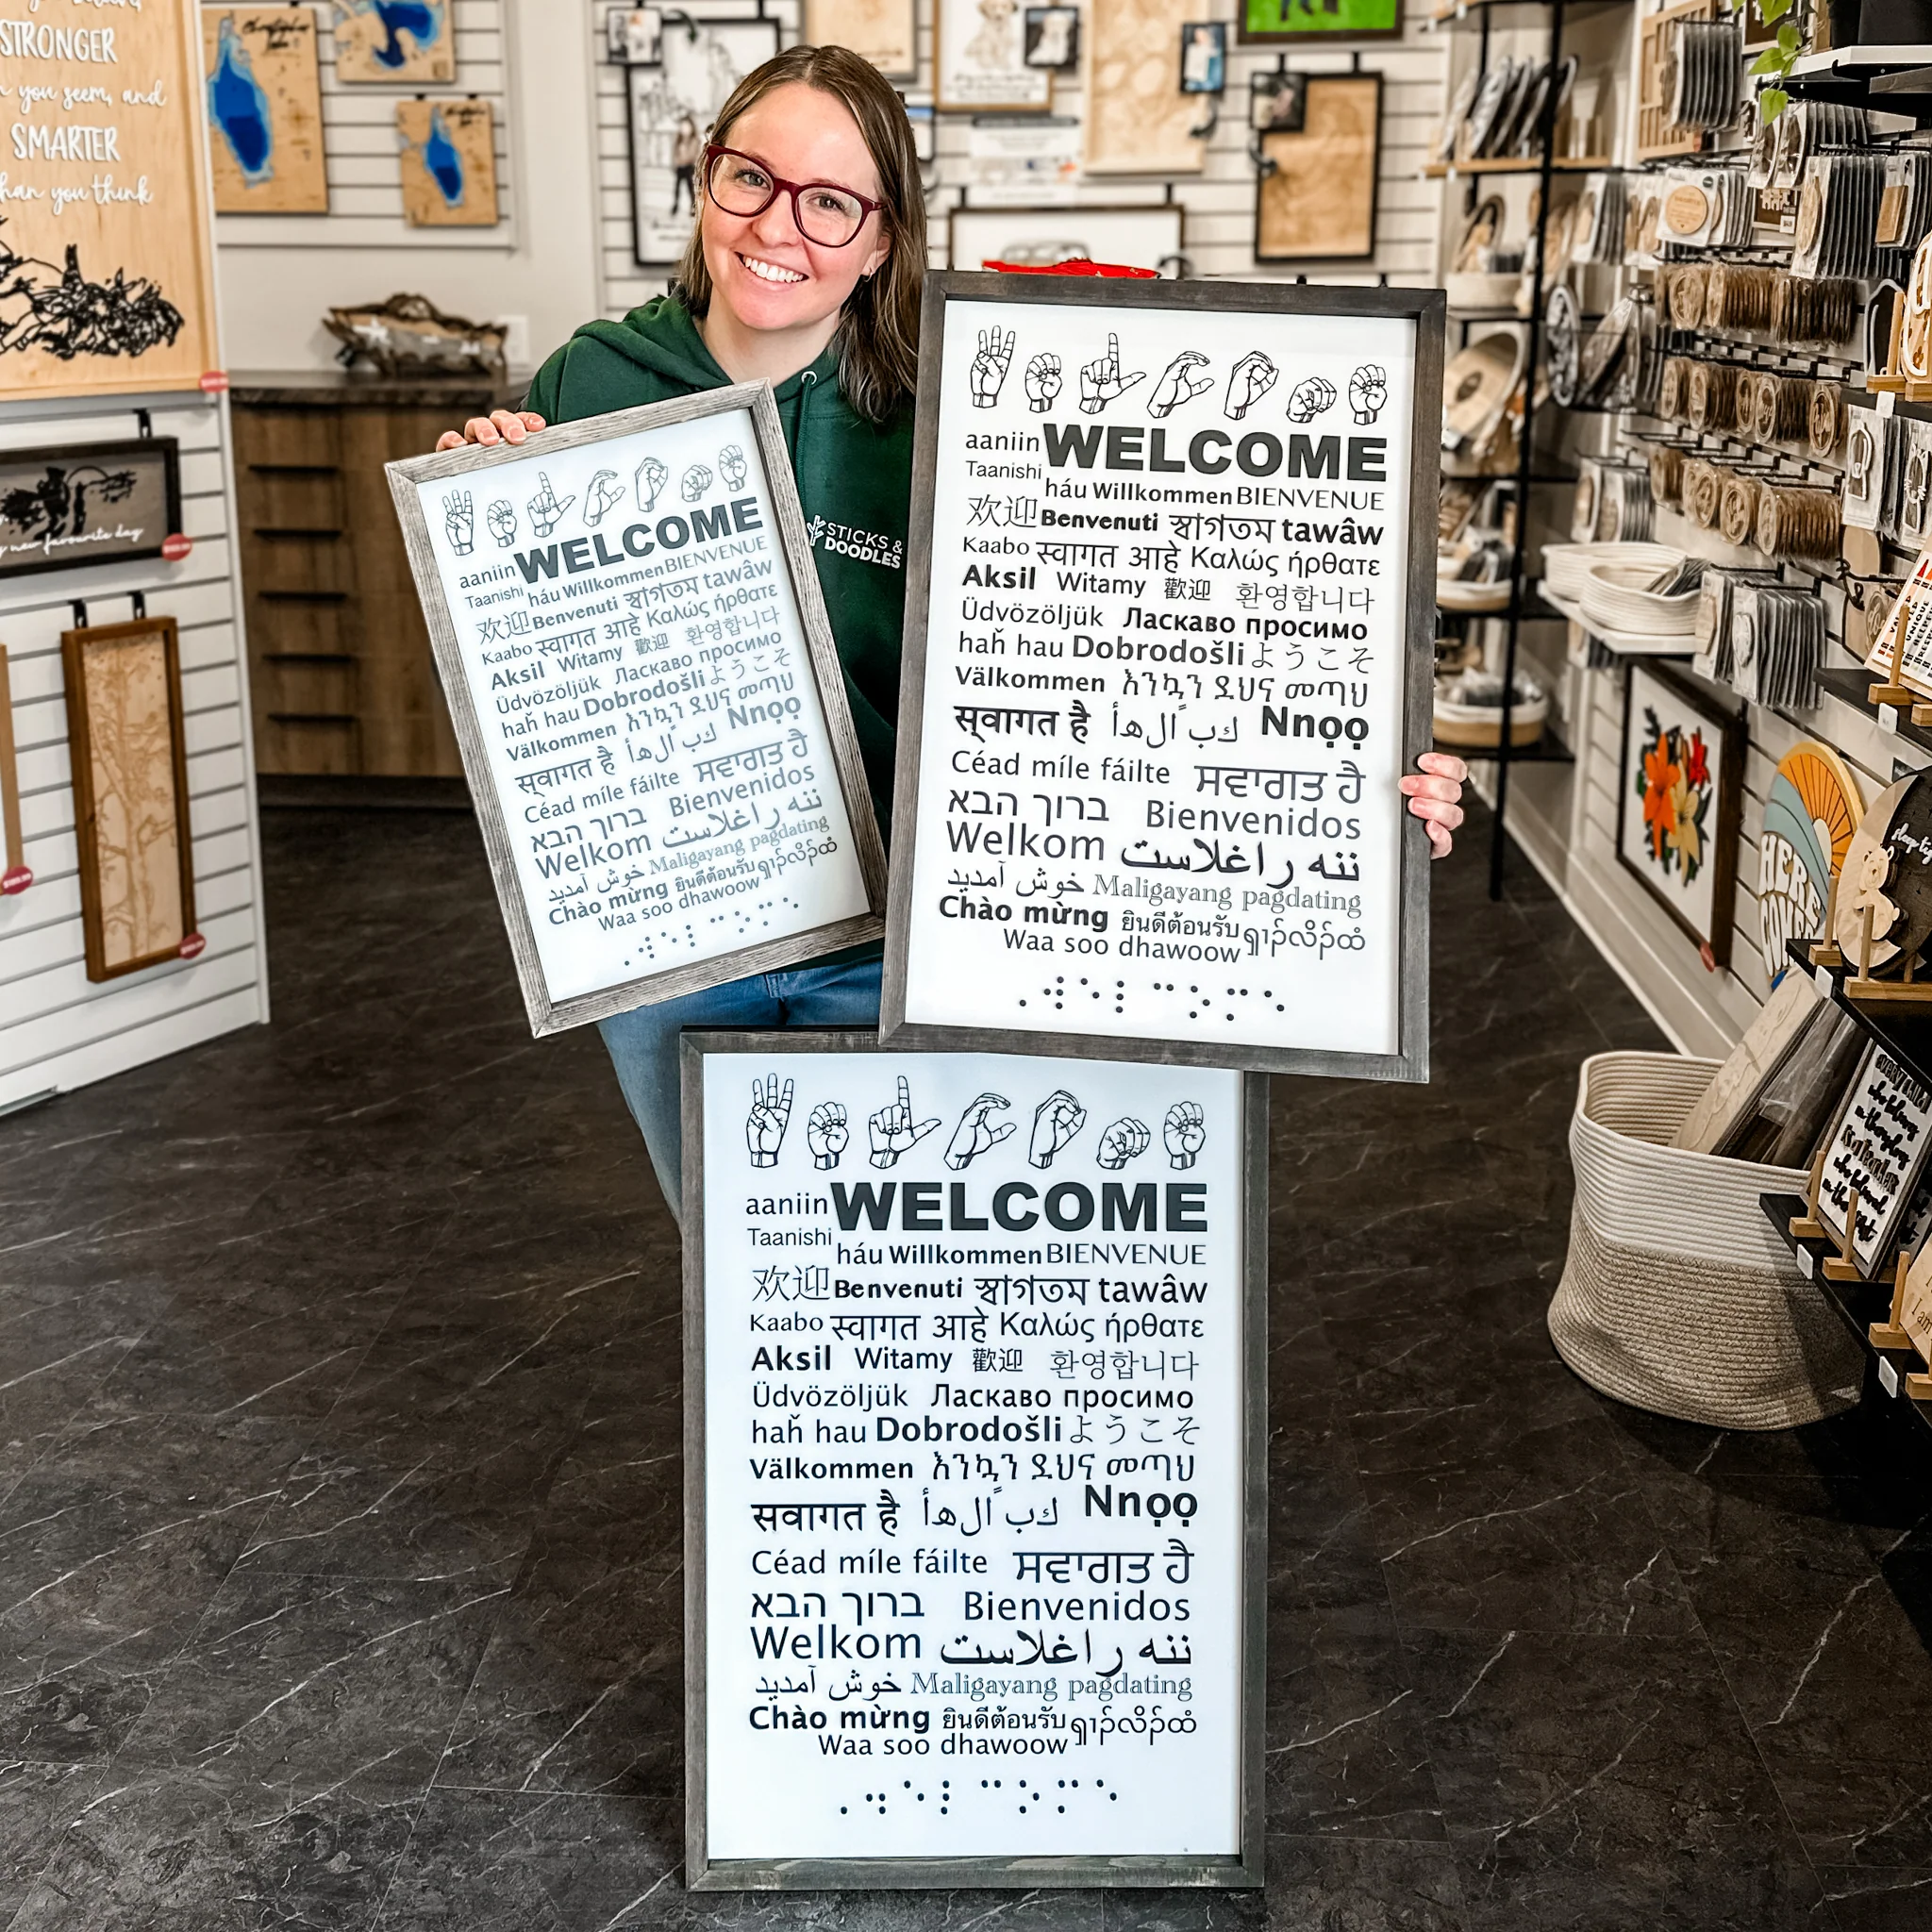 STRONGER
you seem, and
SMARTER
than you think
new favourite day
STICKS &
DOODLES
aaniin WELCOME
Taanishi háu Willkommen BIENVENUE
欢迎 Benvenuti স্বাগতম tawâw
Kaabo स्वागत आहे Καλώς ήρθατε
Aksil Witamy 歡迎 환영합니다
Üdvözöljük Ласкаво просимо
haȟ hau Dobrodošli ようこそ
Välkommen እንኳን ደህና መጣህ
स्वागत है أهلاً بك Nnọọ
Céad míle fáilte ਸਵਾਗਤ ਹੈ
ברוך הבא Bienvenidos
Welkom ننه راغلاست
خوش آمدید Maligayang pagdating
Chào mừng ยินดีต้อนรับ
Waa soo dhawoow
aaniin WELCOME
Taanishi háu Willkommen BIENVENUE
欢迎 Benvenuti স্বাগতম tawâw
Kaabo स्वागत आहे Καλώς ήρθατε
Aksil Witamy 歡迎 환영합니다
Üdvözöljük Ласкаво просимо
haȟ hau Dobrodošli ようこそ
Välkommen እንኳን ደህና መጣህ
स्वागत है أهلاً بك Nnọọ
Céad míle fáilte ਸਵਾਗਤ ਹੈ
ברוך הבא Bienvenidos
Welkom ننه راغلاست
خوش آمدید Maligayang pagdating
Chào mừng ยินดีต้อนรับ
Waa soo dhawoow
aaniin WELCOME
Taanishi háu Willkommen BIENVENUE
欢迎 Benvenuti স্বাগতম tawâw
Kaabo स्वागत आहे Καλώς ήρθατε
Aksil Witamy 歡迎 환영합니다
Üdvözöljük Ласкаво просимо
haȟ hau Dobrodošli ようこそ
Välkommen እንኳን ደህና መጣህ
सवागत है أهلاً بك Nnọọ
Céad míle fáilte ਸਵਾਗਤ ਹੈ
ברוך הבא Bienvenidos
Welkom ننه راغلاست
خوش آمدید Maligayang pagdating
Chào mừng ยินดีต้อนรับ
Waa soo dhawoow
HERE